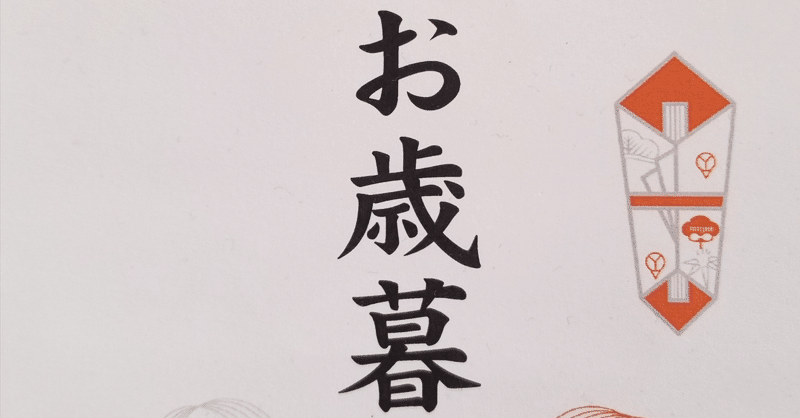 お歳暮